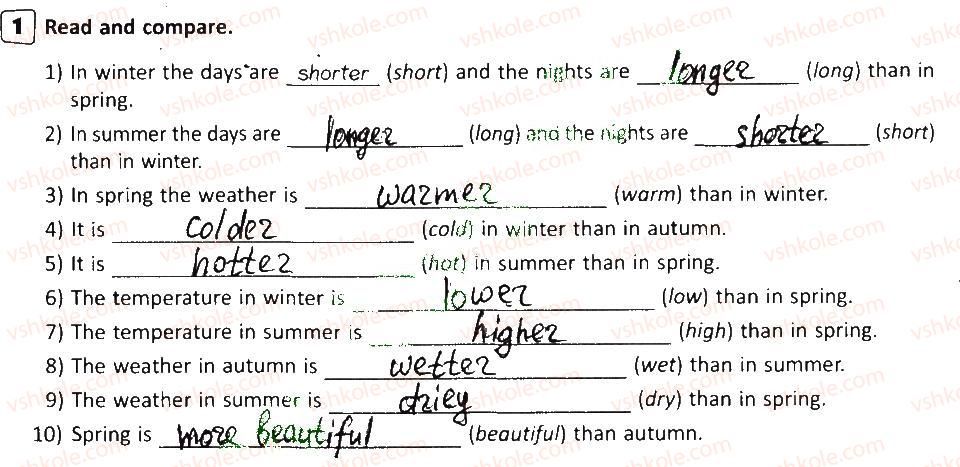 1 Read and compare.
1) In winter the days are shorter (short) and the nights are longer (long) than in
spring.
2) In summer the days are longer (long) and the nights are shorter (short)
than in winter.
3) In spring the weather is warmer (warm) than in winter.
4) It is colder (cold) in winter than in autumn.
5) It is hotter (hot) in summer than in spring.
6) The temperature in winter is lower (low) than in spring.
7) The temperature in summer is higher (high) than in spring.
8) The weather in autumn is wetter (wet) than in summer.
9) The weather in summer is driey (dry) than in spring.
10) Spring is more beautiful (beautiful) than autumn.